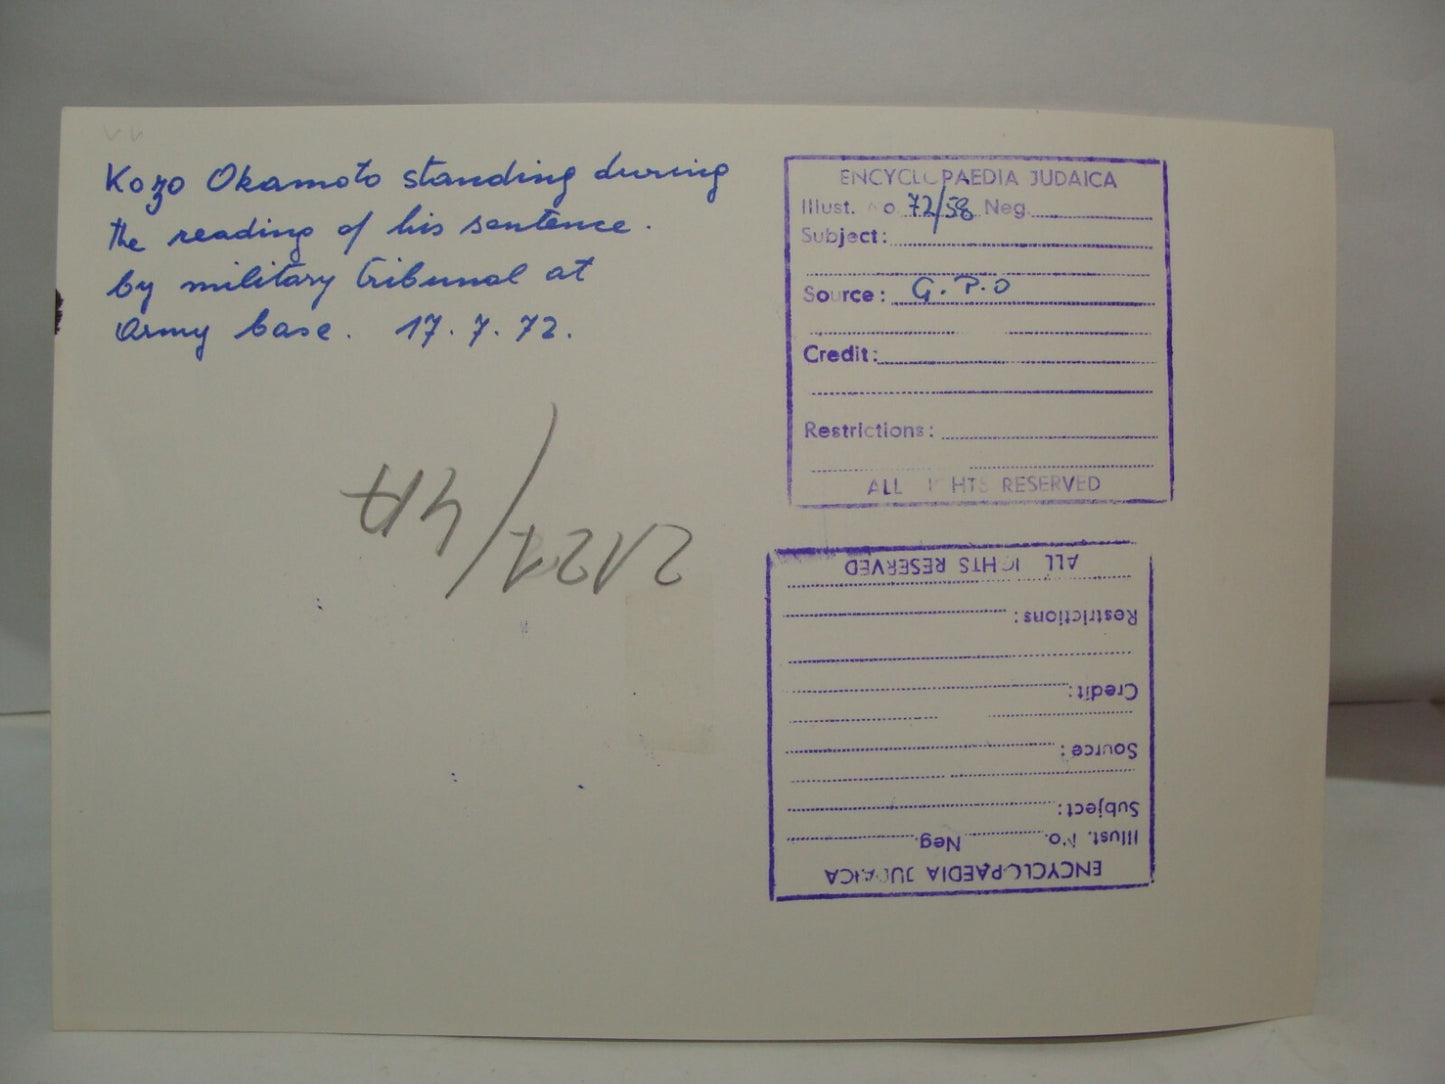 Kozo Okamoto standing during
the reading of his sentence.
by military tribunal at
army base. 17.7.72.
ENCYCLOPAEDIA JUDAICA
Illust. No. 72/58 Neg.
Subject:
Source: G.P.O
Credit:
Restrictions:
ALL RIGHTS RESERVED
2121/4A
ENCYCLOPAEDIA JUDAICA
Illust. No. Neg.
Subject:
Source:
Credit:
Restrictions:
ALL RIGHTS RESERVED